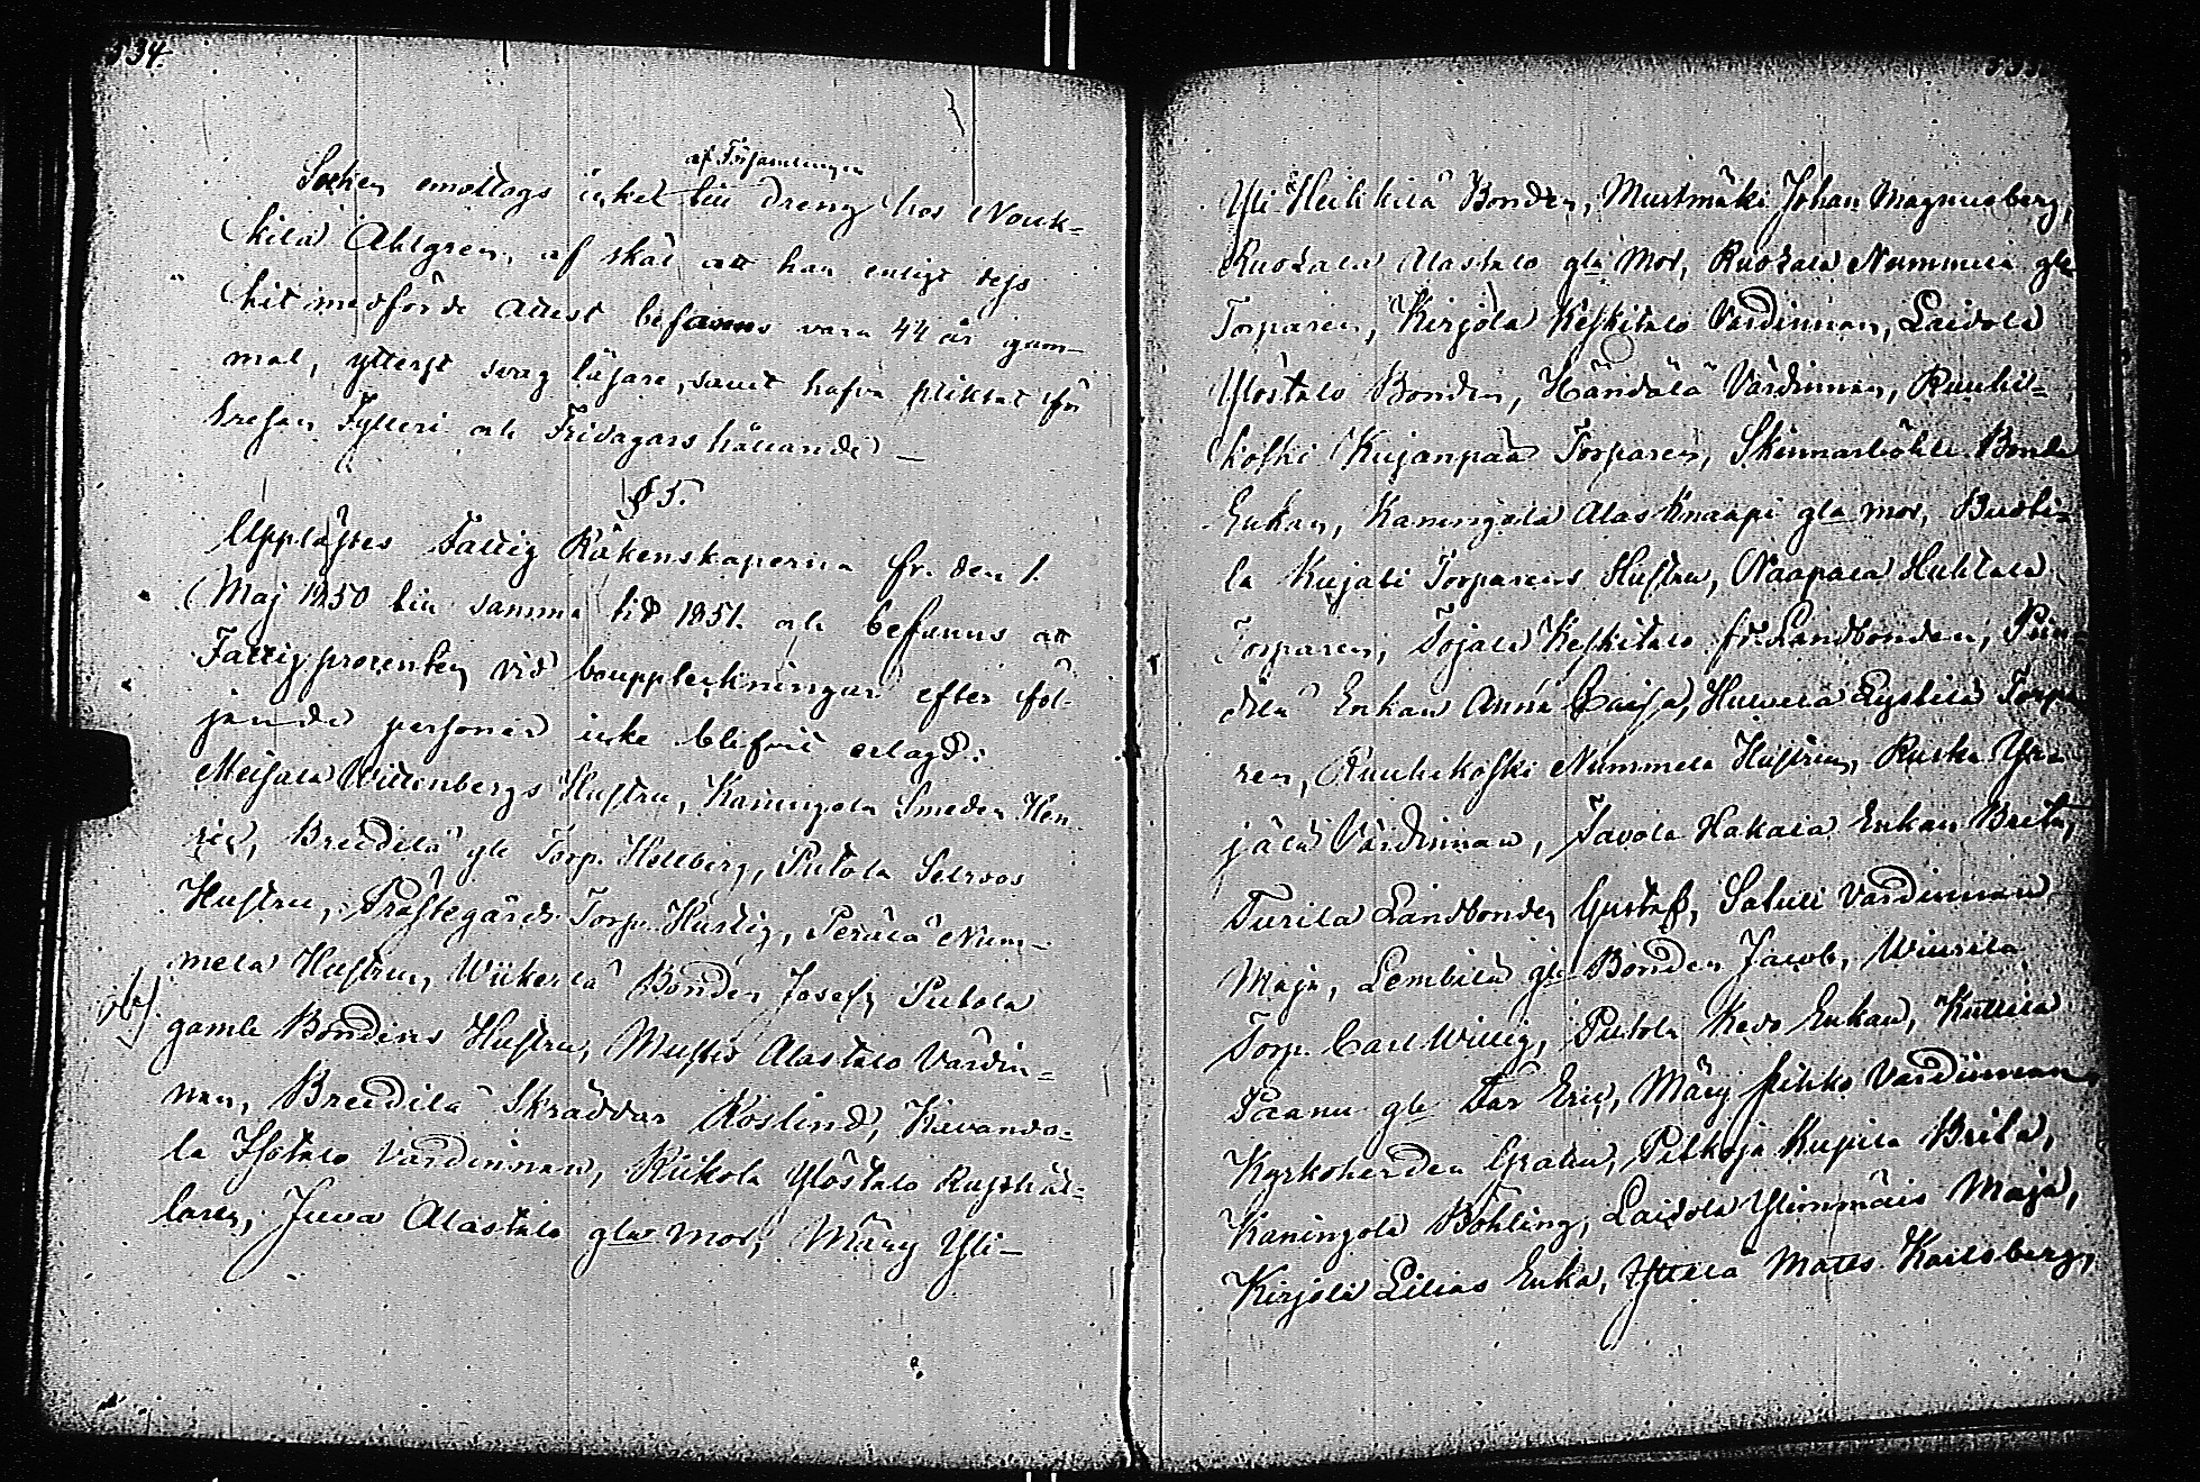 334.
af Församlingen
Socken emottogs icket till dreng hos Nouk-
kila Ahlgren, af skäl att han enligt dess
hit medförde attest befanns vara 44 år gam-
mal, ytterst svag läsare, samt hafva pliktat för
tresan Fylleri och Fridagars hållande —
§ 5.
Upplästes Fattig Räkenskaperna fr. den 1.
Maj 1850 till samma tid 1851. och befanns att
Fattigprocenten vid bouppteckningar efter föl-
jande personer icke blifvit erlagd:
Meisala Wittenbergs Hustru, Kaningola Smeden Hen-
ric, Breidilä gle Torp. Hellberg, Putola Selroos
Hustru, Prästegårds Torp. Hurtig, Perälä Num-
mela Hustrun, Wiikerlä Bonden Josef, Putola
gamle Bondens Hustru, Mustio Alastalo Värdin-
nan, Breidilä Skräddar Roslind, Kavando-
la Isotalo Värdinnan, Riikola Ylöstalo Rusthål-
laren, Juva Alastalo gla mor, Märy Yli-
Yli Heikkilä Bonden, Mustmäki Johan Magnusberg,
Ruokala Alastalo gla Mor, Ruokala Nummila gle
Torparen, Kirjola Keskitalo Värdinnan, Laidola
Ylöstalo Bonden, Händälä Värdinnan, Ruuhi-
koski Kujanpää Torparen, Skinnarböhle Bonde
Enkan, Kaningola Alas Knaapi gla mor,
la Kujati Torparens Hustru, Naapala Huhtala
Torparen, Tojala Keskitalo fr. Landbonden,
Enkan Anna Caisa, Hulvela Eystilä Torpa-
ren, Ruuhikoski Nummela Hustrun, Ruska Yli-
jälä Värdinnan, Tavola Hakala Enkan Brita,
Turila Landbonden Gustaf, Satuli Värdinnan
Maja, Lembilä gle Bonden Jacob, Wiurila
Torp. Carl Willig, Putola Kevo Enkan, Kullila
Paanu gle Far Eric, Märy Pihko Värdinnan,
Kyrkoherden Gralin, Kupila Brita,
Kaningola Böhling, Laidola Ylimmäis Maja,
Kirjola Lilius Enka, Matts Karlsberg,